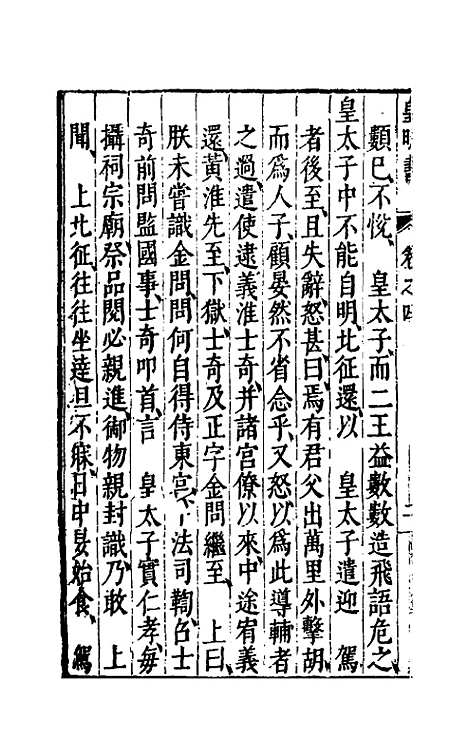 皇明書 卷之四
類已、不悅、　皇太子、而二王益數數造飛語危之、
皇太子中不能自明、北征還、以　皇太子遣迎　駕
者後至、且失辭、怒甚、曰、焉有君父出萬里外擊胡、
而爲人子、顧晏然不省念乎、又怒以爲此導輔者
之過、遣使逮義淮士奇、并諸宮僚以來、中途宥義
還、黃淮先至、下獄、士奇及正字金問繼至、　上曰、
朕未嘗識金問、問何自得侍東宮、下法司鞫、召士
奇前問監國事、士奇叩首、言　皇太子實仁孝、毎
攝祠宗廟、祭品閱必親進、御物親封識、乃敢　上
聞、　上北征、往往坐達旦不寐、日中昃始食、　駕